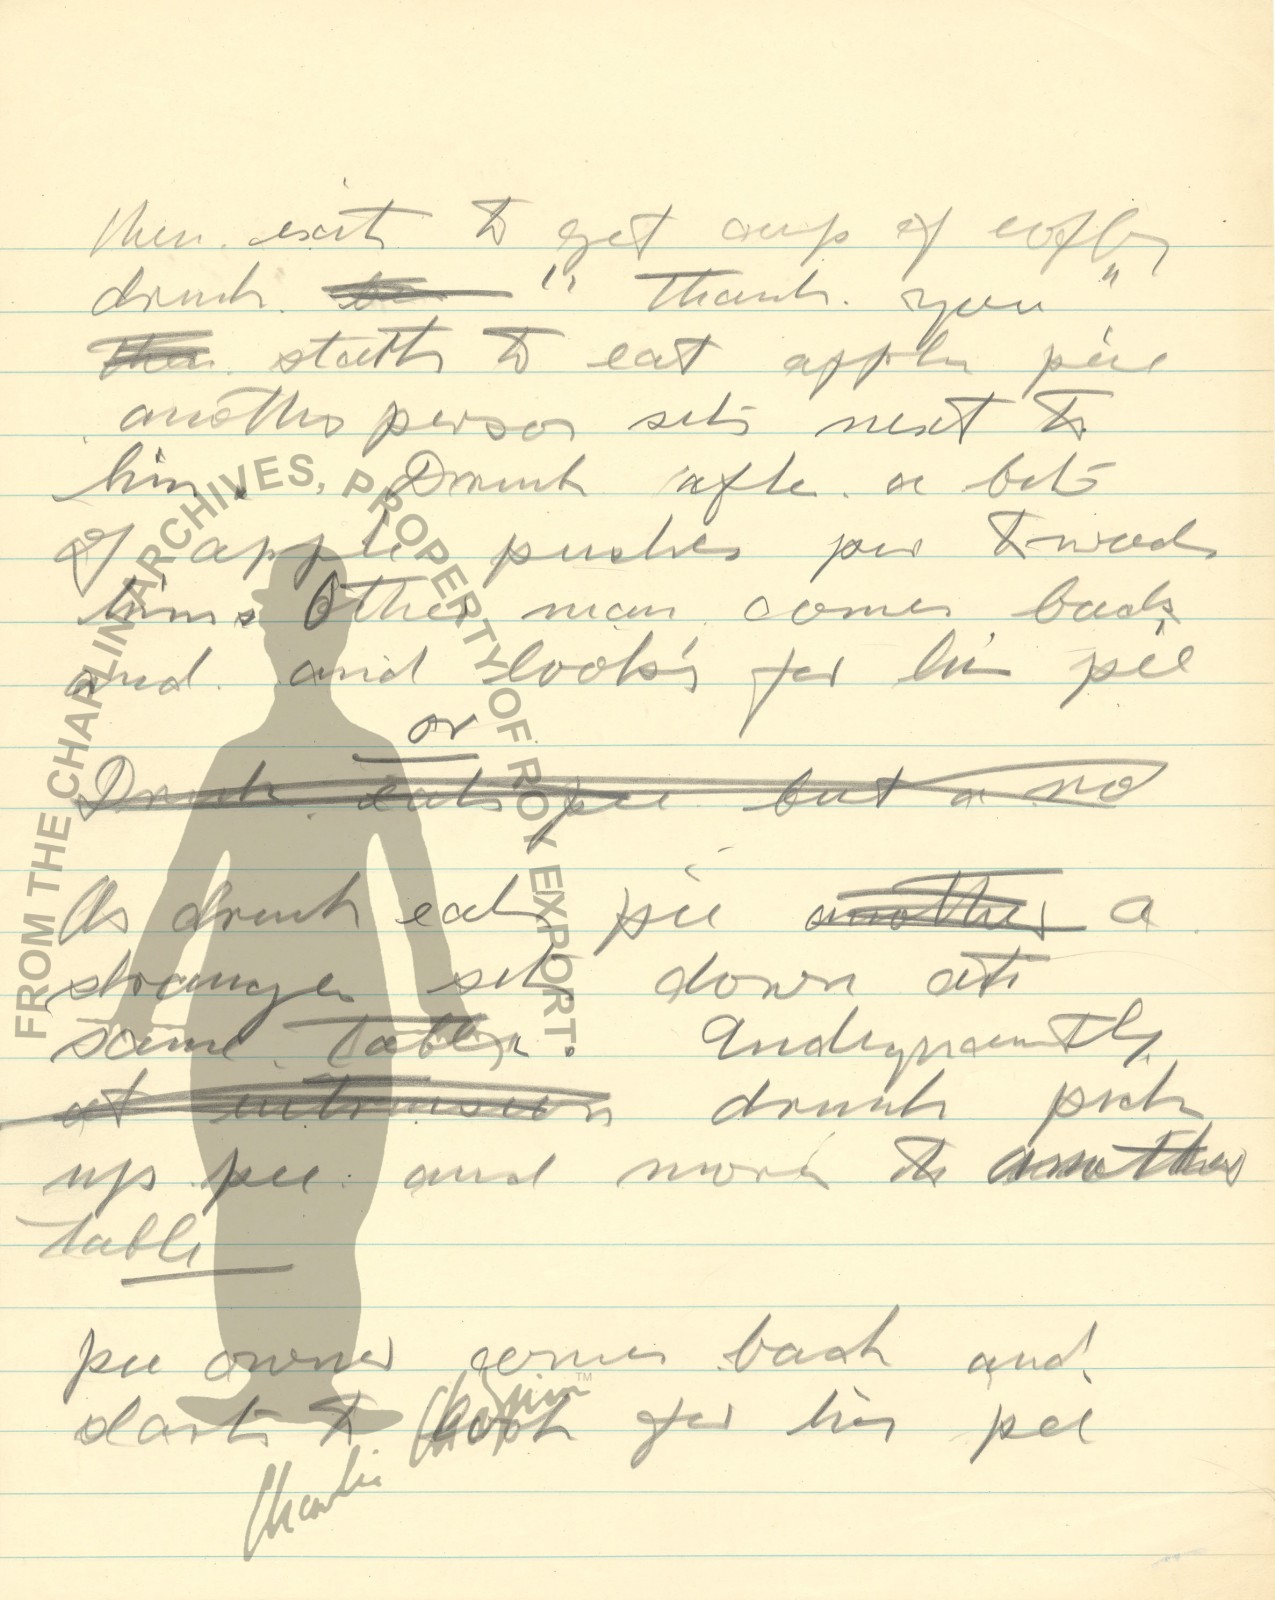 then exits to get cup of coffee
drunk "Thank you"
starts to eat apple pie
another person sits next to
him. Drunk after a bit
of apple pushes pie towards
him. Other man comes back
and and looks for his pie
or
Drunk eats pie but a no
As drunk eats pie another a
stranger sits down at
same table. Indignantly
at intrusion drunk picks
up pie and moves to another
table
pie owner comes back and
starts to look for his pie
FROM THE CHAPLIN ARCHIVES, PROPERTY OF ROY EXPORT.
Charlie Chaplin™